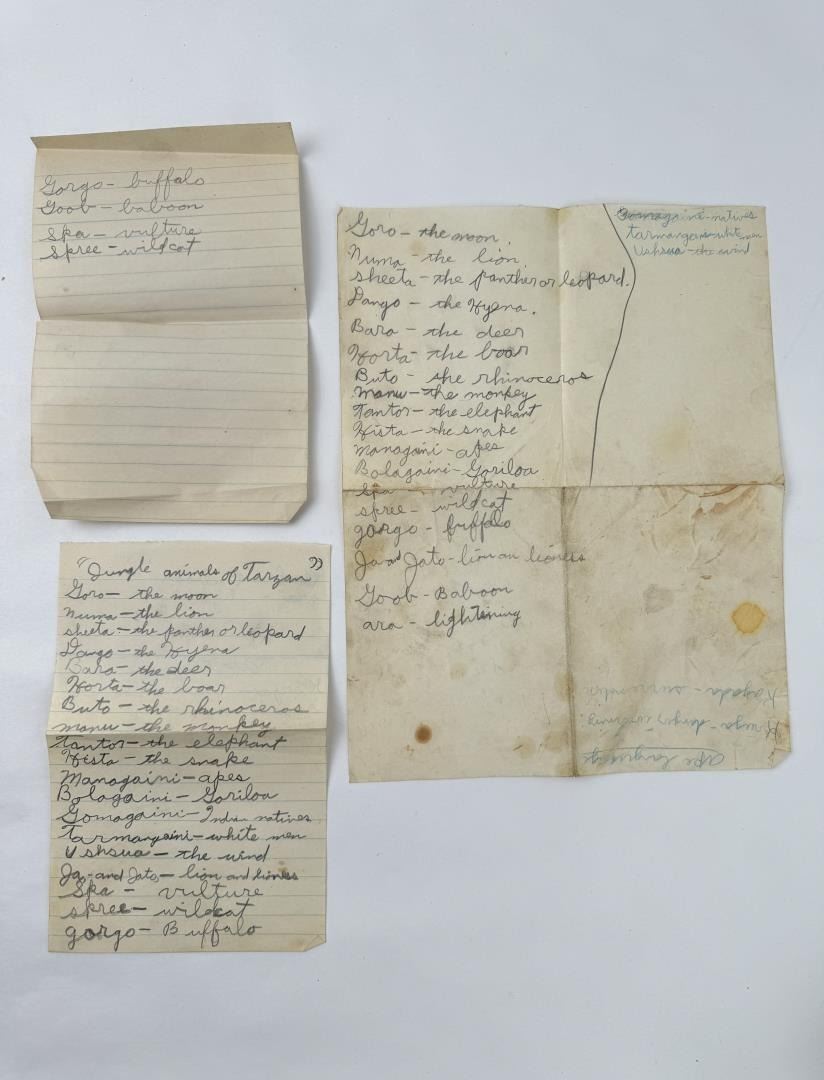 Gorgo - buffalo
Goob - baboon
Ska - vulture
Spree - wildcat
Goro - the moon.
Numa - the lion.
sheeta - the panther or leopard.
Dango - the Hyena.
Bara - the deer
Horta - the boar
Buto - the rhinoceros
manu - the monkey
Tantor - the elephant
Hista - the snake
Managaini - apes
Bolagaini - Goriloa
Ska - vulture
spree - wildcat
gorgo - buffalo
Ja and Jato - lion an lioness
Goob - Baboon
ara - lightening
Gomagaini - natives
tarmangani - white men
Ushsua - the wind
ape language
Kreega - danger warning!
Kagoda - surrender
"Jungle animals of Tarzan"
Goro - the moon
Numa - the lion
sheeta - the panther or leopard
Dango - the Hyena
Bara - the deer
Horta - the boar
Buto - the rhinoceros
manu - the monkey
Tantor - the elephant
Hista - the snake
Managaini - apes
Bolagaini - Goriloa
Gomagaini - Indian natives
Tarmangaini - white men
Ushsua - the wind
Ja - and Jato - lion and lioness
Ska - vulture
spree - wildcat
gorgo - Buffalo